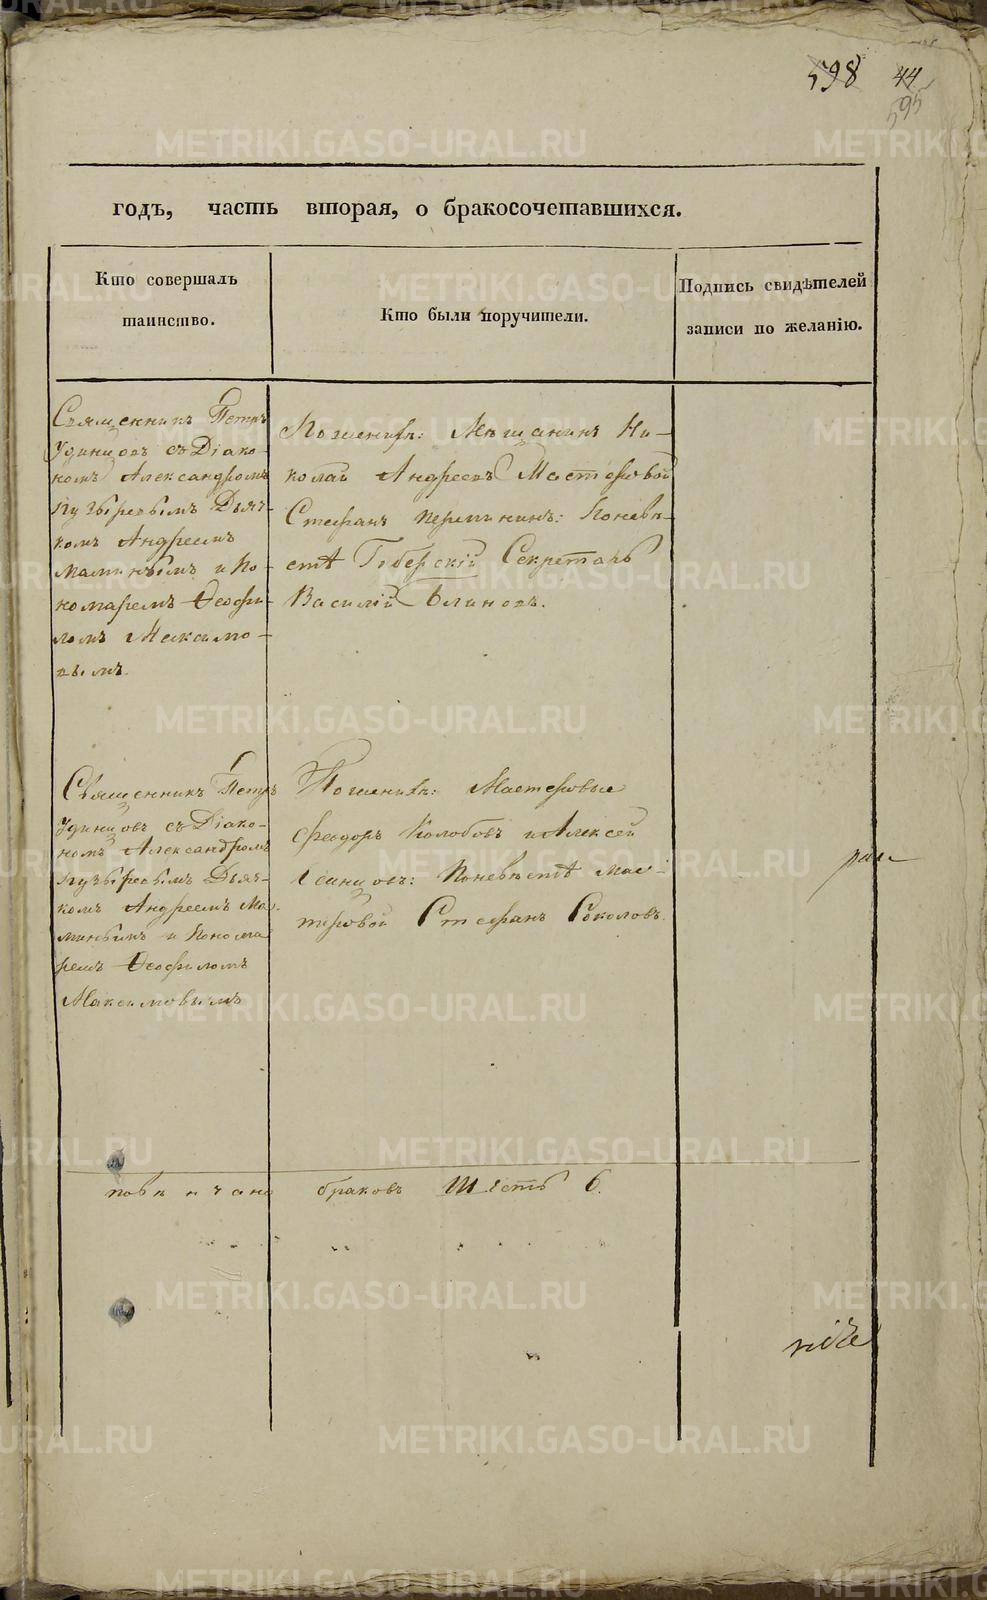 598 44
595
годъ, часть вторая, о бракосочетавшихся.
Кто совершалъ
таинство.
Кто были поручители.
Подпись свидѣтелей
записи по желанію.
Священникъ Петръ
Удинцовъ съ Діако-
номъ Александромъ
Пузыревымъ Дьяч-
комъ Андреемъ
Маминымъ и По-
номаремъ Ѳеофи-
ломъ Максимо-
вымъ.
По женихѣ: Мѣщанинъ Ни-
колай Андреевъ Мастеровой
Стефанъ Пермикинъ: По невѣ-
стѣ Секретарь
Василій Блиновъ.
Священникъ Петръ
Удинцовъ съ Діако-
номъ Александромъ
Пузыревымъ Дьяч-
комъ Андреемъ Ма-
минымъ и Понома
ремъ Ѳеофиломъ
Максимовымъ
По женихѣ: Мастеровые
Феодоръ Колобовъ и Алексей
по невѣстѣ Мас-
теровой Стефанъ Соколовъ.
повѣнчано браковъ Шесть 6.
METRIKI.GASO-URAL.RU